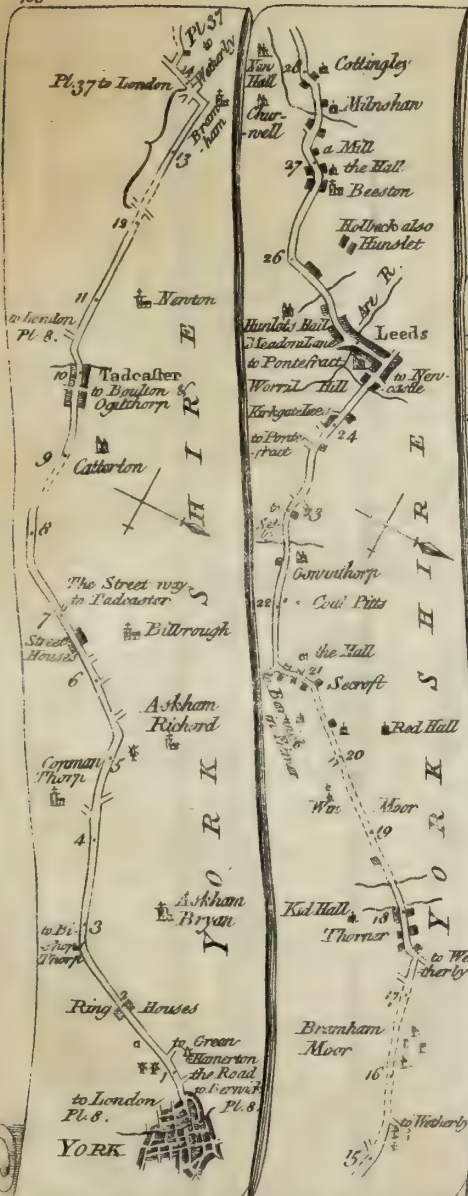 Pl. 37
to
Wetherby
Pl. 37 to London
Bram-
ham
13
12
11
Newton
to London
Pl. 8.
10
Tadcaster
to Boulton &
Ogilthorp
9
Catterton
8
The Street way
to Tadcaster
7
Street
Houses
Bilbrough
6
Askham
Richard
5
Copman
Thorp
4
Askham
Bryan
3
to Bi-
shop
Thorp
Ring Houses
to Green
Hamerton
the Road
to Berwick
Pl. 8.
1
to London
Pl. 8.
YORK
YORK SHIRE
28
Cottingley
Hall
Chur-
well
Milnshaw
a Mill
27
the Hall
Beeston
Holbeck also
Hunslet
26
Are R.
Hunslets Hall
Leeds
Meadow Lane
to Pontefract
to New-
castle
Worril Hill
Kirkgate Lees
24
to Ponte-
fract
23
to
Osmunthorp
22
Coal Pitts
the Hall
21
Secroft
Barwick
in Elmet
Red Hall
20
Win Moor
19
Kid Hall
18
Thorner
to We
therby
17
Bramham
Moor
16
to Wetherby
15
YORK SHIRE